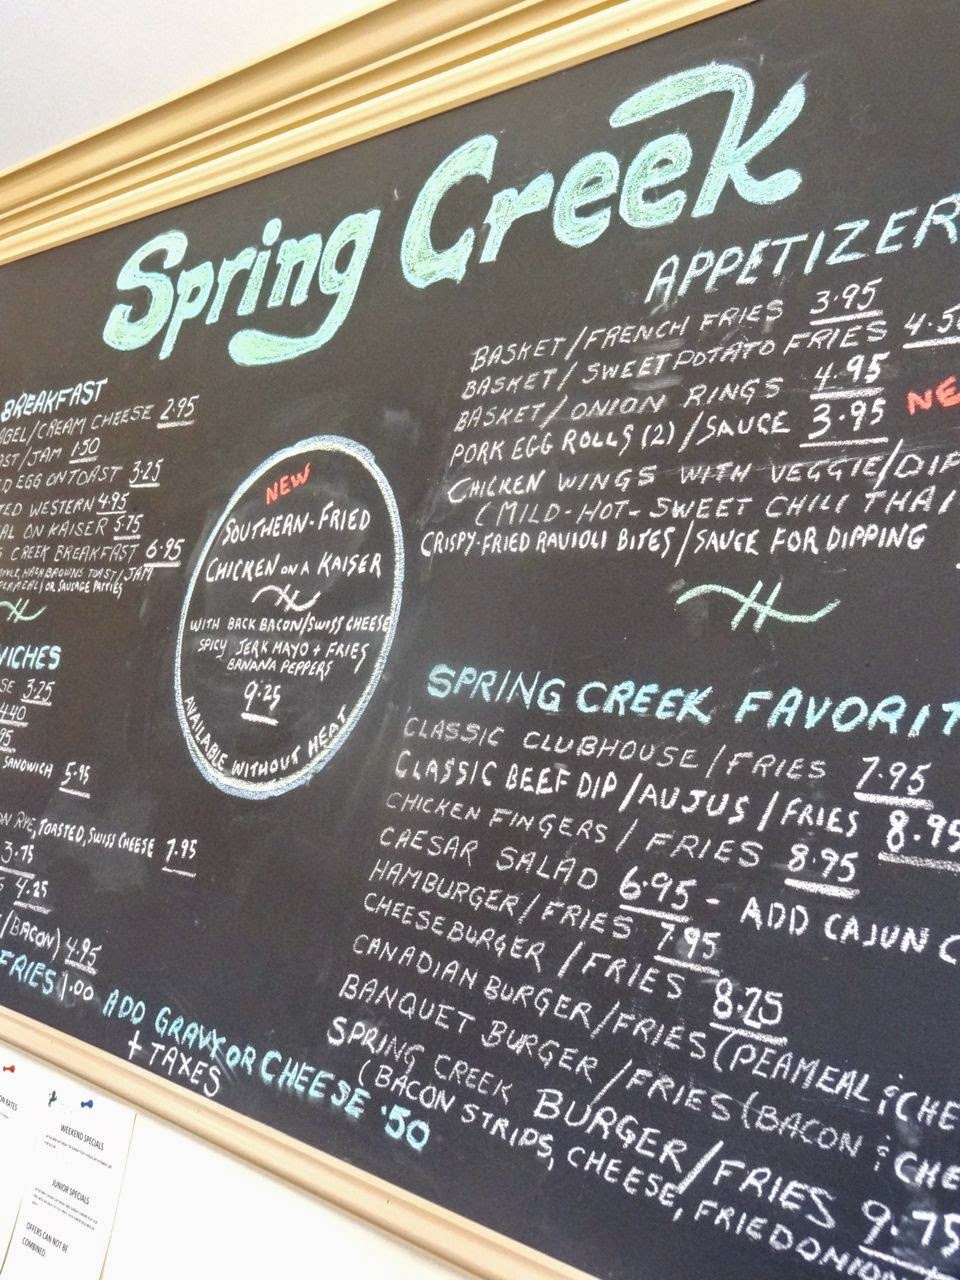 Spring Creek
BREAKFAST
CREAM CHEESE 2.95
JAM 1.50
EGG ON TOAST 3.25
WESTERN 4.95
ON KAISER 5.75
CREEK BREAKFAST 6.95
HASH BROWNS TOAST/JAM
OR SAUSAGE PATTIES
3.25
4.40
SANDWICH 5.95
RYE, TOASTED, SWISS CHEESE 7.95
3.75
4.25
/BACON) 4.95
FRIES 1.00 ADD GRAVY OR CHEESE .50
+ TAXES
NEW
SOUTHERN-FRIED
CHICKEN ON A KAISER
WITH BACK BACON/SWISS CHEESE
SPICY JERK MAYO + FRIES
BANANA PEPPERS
9.25
AVAILABLE WITHOUT HEAT
APPETIZER
BASKET/FRENCH FRIES 3.95
BASKET/SWEETPOTATO FRIES 4.50
BASKET/ONION RINGS 4.95
PORK EGG ROLLS (2)/SAUCE 3.95 NE
CHICKEN WINGS WITH VEGGIE/DIP
(MILD-HOT-SWEET CHILI THAI
CRISPY-FRIED RAVIOLI BITES/SAUCE FOR DIPPING
SPRING CREEK FAVORIT
CLASSIC CLUBHOUSE/FRIES 7.95
CLASSIC BEEF DIP/AUJUS/FRIES 8.95
CHICKEN FINGERS/FRIES 8.95
CAESAR SALAD 6.95 - ADD CAJUN C
HAMBURGER/FRIES 7.95
CHEESEBURGER/FRIES 8.25
CANADIAN BURGER/FRIES (PEAMEAL & CHE
BANQUET BURGER/FRIES (BACON & CHE
SPRING CREEK BURGER/FRIES 9.75
(BACON STRIPS, CHEESE, FRIED ONION
WEEKEND SPECIALS
JUNIOR SPECIALS
OFFERS CAN NOT BE
COMBINED.